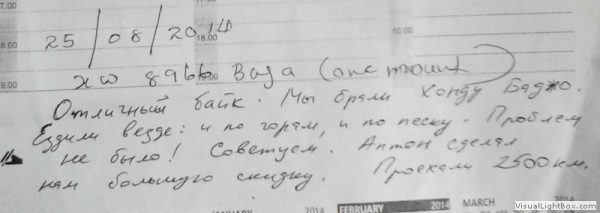 7.00
25/08/2014
8.00
18.00
10.00
хw 8966 Baja (one mount)
9.00
19.00
Отличный байк. Мы брали Хонду Баджо.
Ездили везде: и по горам, и по песку. Проблем
не было! Советуем. Антон сделал
нам большую скидку. Проехали 2500 км.
JANUARY 2014 FEBRUARY 2014 MARCH
VisualLightBox.com